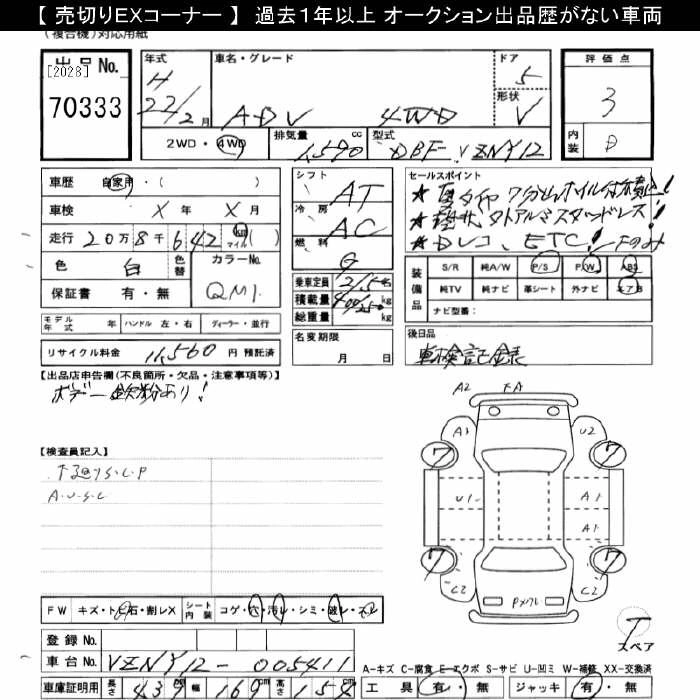 【 売切りEXコーナー 】 過去１年以上 オークション出品歴がない車両
(複合機)対応用紙
出品No.
[2028]
70333
年式
H
22/2月
車名・グレード
ADV 4WD
ドア
5
形状
V
評価点
3
内装
D
2WD・4WD
排気量
1,590 cc
型式
DBF-VZNY12
車歴 自家用・( )
車検 X 年 X 月
走行 20万8千642 km マイル( )
色 白 色替
カラーNo.
QM1.
保証書 有・無
シフト
AT
冷房
AC
燃料
G
乗車定員 2/5名
積載量 400/250kg
総重量 kg
名変期限
月 日
セールスポイント
★ Dレコ、ETC!
装備品
S/R 純A/W P/S P/W ABS
純TV 純ナビ 革シート 外ナビ エアB
ナビ型番:
モデル年式 年 ハンドル 左・右 ディーラー・並行
リサイクル料金 11,560 円 預託済
後日品
車検記録
【出品店申告欄(不良箇所・欠品・注意事項等)】
ボデー鉄粉あり!
【検査員記入】
下廻りS.C.P
A.U.S.C
A2 FA
A3 U2
7 7
U1 A1
A1
7 7
C2 PメクレC2
T
スペア
FW キズ・トビ石・割レX シート内装 コゲ・穴・汚レ・シミ・破レ・スレ
登録No.
車台No. VZNY12-005411
車庫証明用 長さ 439cm 幅 169cm 高さ 154cm
A-キズ C-腐食 E-エクボ S-サビ U-凹ミ W-補修 XX-交換済
工具 有・無 ジャッキ 有・無